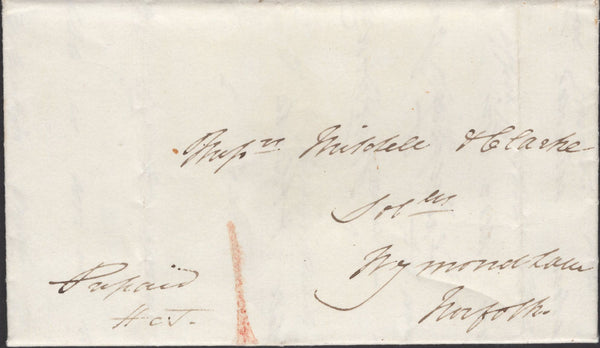 Messrs Mitchell & Clarke
Solrs
Wymondham
Norfolk.
Prepaid
H C J.